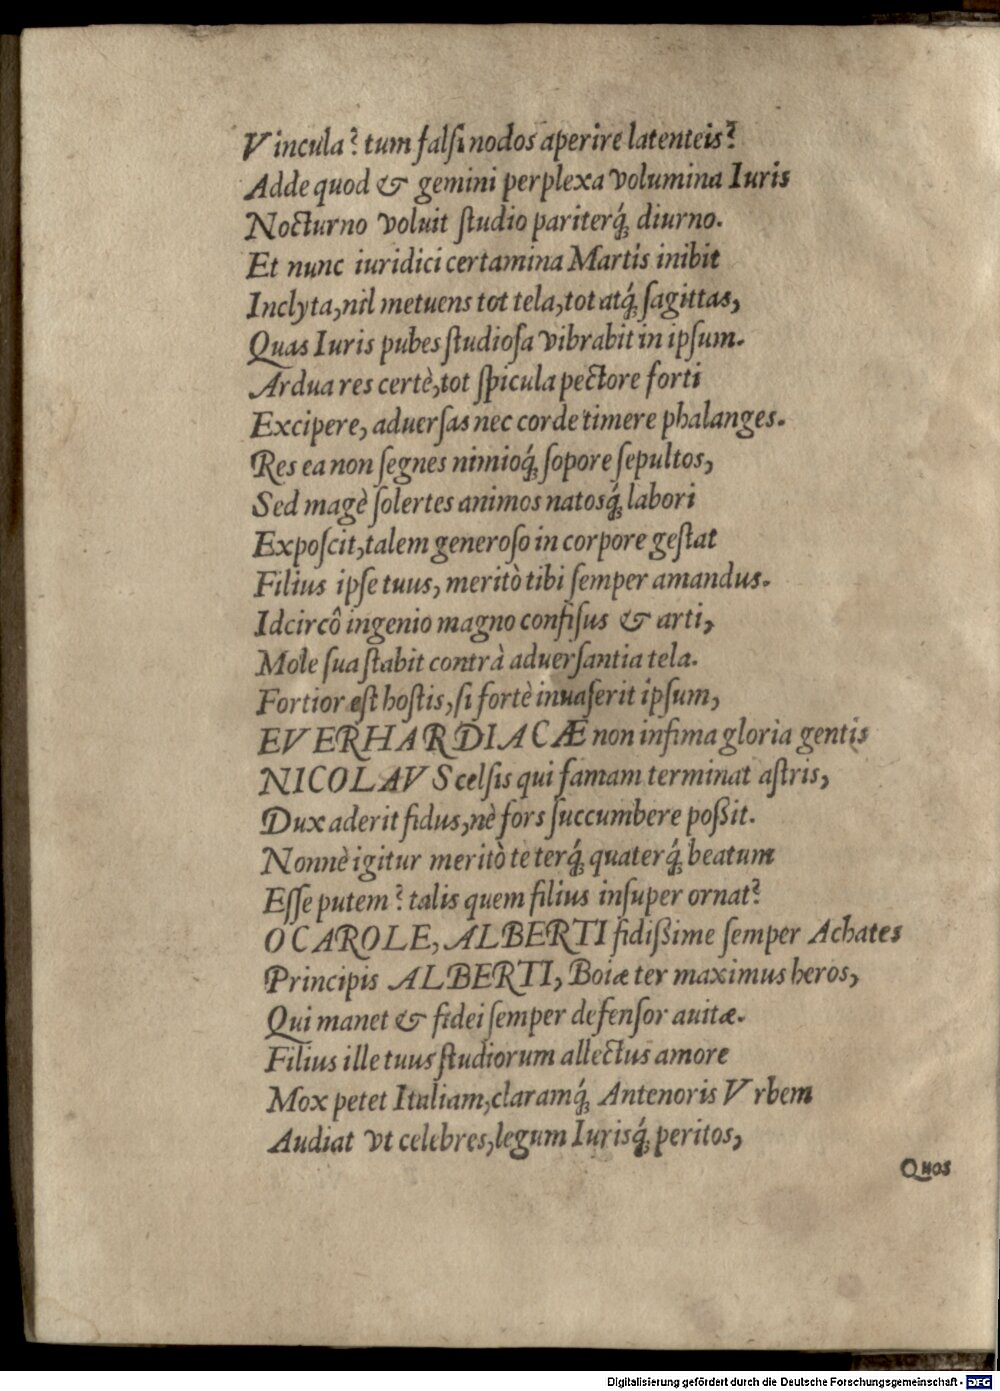 Vincula? tum falſi nodos aperire latenteis?
Adde quod & gemini perplexa volumina Iuris
Nocturno voluit ſtudio pariterq́; diurno.
Et nunc iuridici certamina Martis inibit
Inclyta, nil metuens tot tela, tot atq́; ſagittas,
Quas Iuris pubes ſtudioſa vibrabit in ipſum.
Ardua res certè, tot ſpicula pectore forti
Excipere, aduerſas nec corde timere phalanges.
Res ea non ſegnes nimioq́; ſopore ſepultos,
Sed magè ſolertes animos natosq́; labori
Expoſcit, talem generoſo in corpore geſtat
Filius ipſe tuus, meritò tibi ſemper amandus.
Idcircô ingenio magno confiſus & arti,
Mole ſua ſtabit contrà aduerſantia tela.
Fortior eſt hoſtis, ſi fortè inuaſerit ipſum,
EVERHARDIACÆ non infima gloria gentis
NICOLAVS celſis qui famam terminat aſtris,
Dux aderit fidus, nè fors ſuccumbere poßit.
Nonnè igitur meritò te terq́; quaterq́; beatum
Eſſe putem? talis quem filius inſuper ornat?
O CAROLE, ALBERTI fidißime ſemper Achates
Principis ALBERTI, Boiæ ter maximus heros,
Qui manet & fidei ſemper defenſor auitæ.
Filius ille tuus ſtudiorum allectus amore
Mox petet Italiam, claramq́; Antenoris Vrbem
Audiat vt celebres, legum Iurisq́; peritos,
Quos
Digitalisierung gefördert durch die Deutsche Forschungsgemeinschaft - DFG